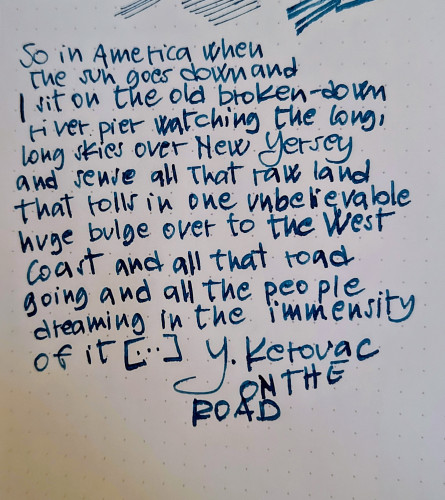 So in America when
the sun goes down and
I sit on the old broken-down
river pier watching the long,
long skies over New Yersey
and sense all that raw land
that rolls in one unbelievable
huge bulge over to the West
Coast and all that road
going and all the people
dreaming in the immensity
of it [...] Y. Kerovac
ON THE
ROAD